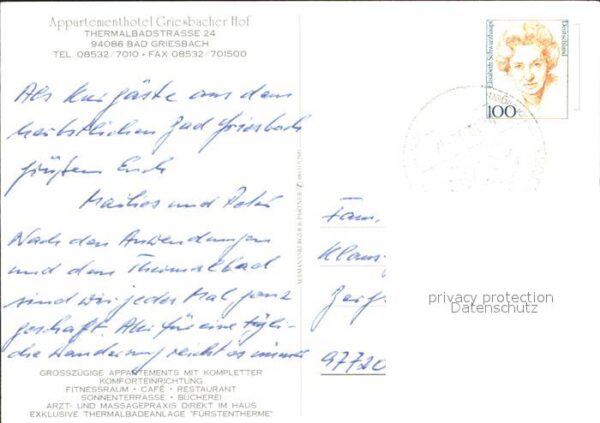 Appartementhotel Griesbacher Hof
THERMALBADSTRASSE 24
94086 BAD GRIESBACH
TEL 08532/7010 • FAX 08532/701500
Elisabeth Schwarzhaupt
Deutschland
100
Als Kurgäste aus dem
herbstlichen Bad Griesbach
grüßen Euch
und Peter
Nach den Anwendungen
und dem Thermalbad
sind wir jedes Mal ganz
geschafft. Aber für eine tägli-
che Wanderung reicht es immer
Fam.
Klaus-
97720
privacy protection
Datenschutz
GROSSZÜGIGE APPARTEMENTS MIT KOMPLETTER
KOMFORTEINRICHTUNG
FITNESSRAUM • CAFÉ • RESTAURANT
SONNENTERRASSE • BÜCHEREI
ARZT- UND MASSAGEPRAXIS DIREKT IM HAUS
EXKLUSIVE THERMALBADEANLAGE "FÜRSTENTHERME"